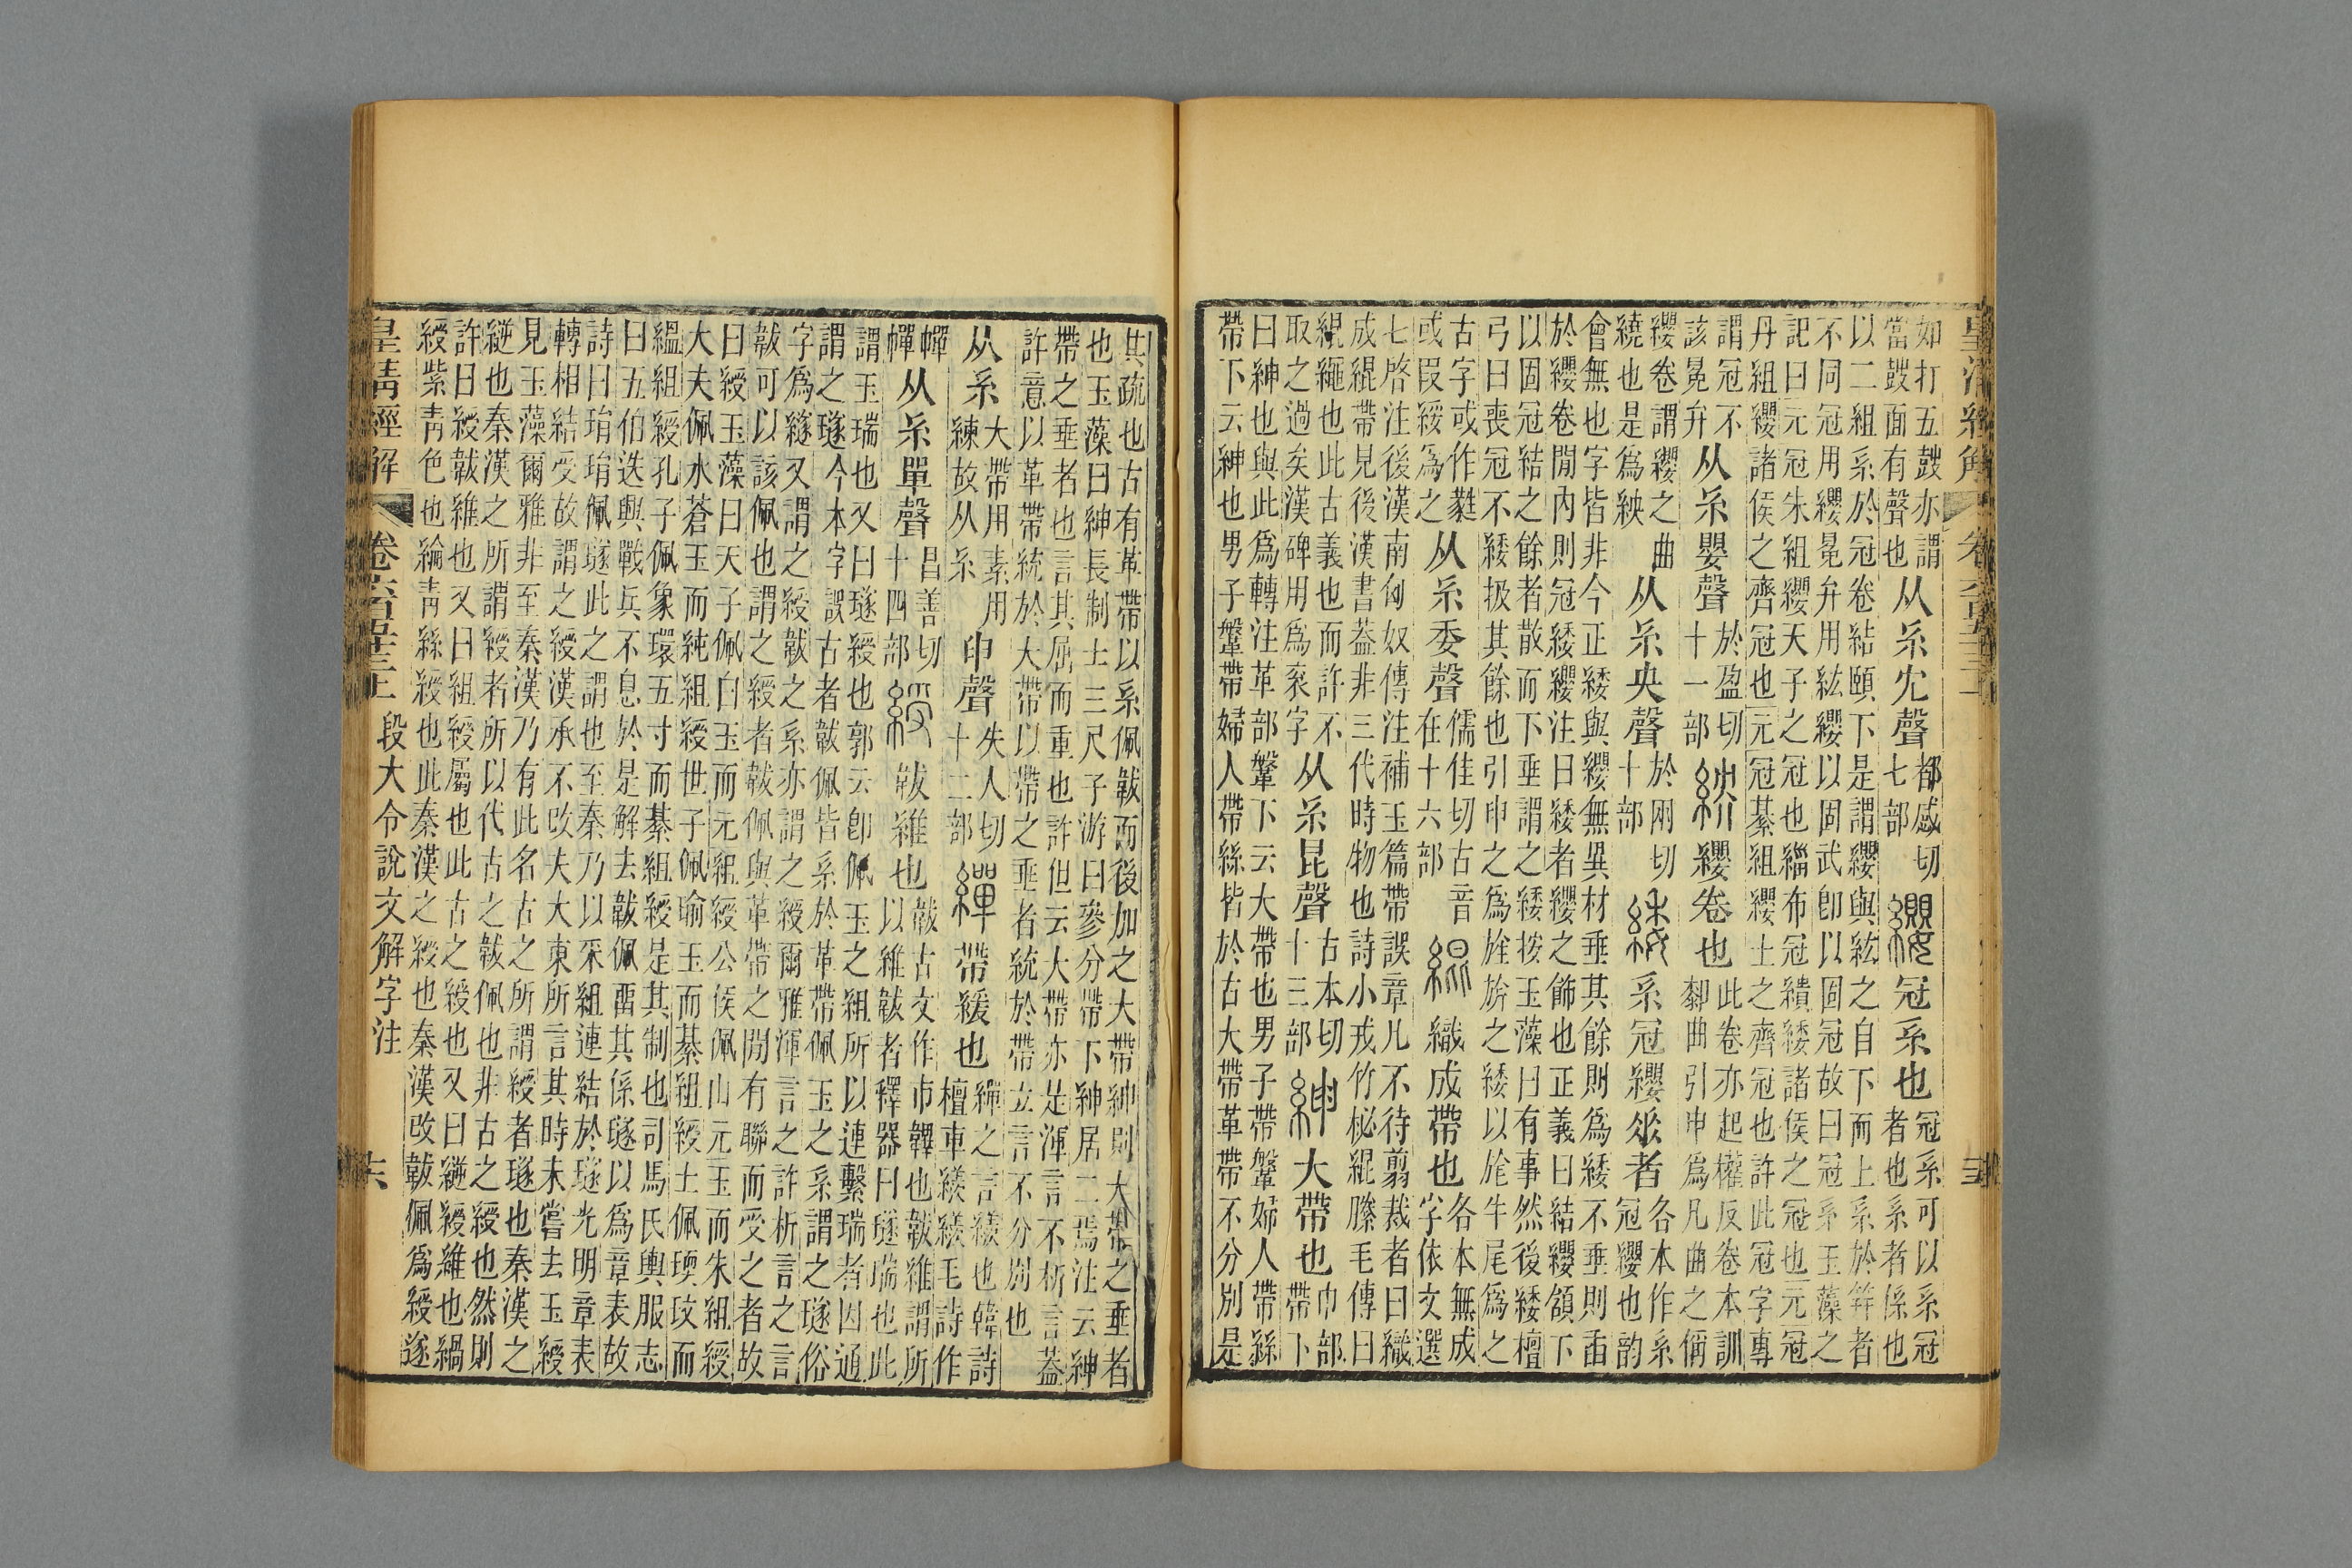 皇清經解 卷六百五十三上
如打五鼓亦謂
當鼓面有聲也
从糸冘聲
都感切
七部
纓冠系也
冠系可以系冠
者也系者係也
以二組系於冠卷結頤下是謂纓與紘之自下而上系於笄者
不同冠用纓冕弁用紘纓以固武卽以固冠故曰冠系玉藻之
記曰元冠朱組纓天子之冠也緇布冠繢緌諸侯之冠也元冠
丹組纓諸侯之齊冠也元冠綦組纓士之齊冠也許此冠字專
謂冠不
該冕弁
从糸嬰聲
於盈切
十一部
紻纓卷也
此卷亦起權反卷本訓
厀曲引申爲凡曲之偁
纓卷謂纓之曲
繞也是爲紻
从糸央聲
於兩切
十部
緌系冠纓𠂹者
各本作系
冠纓也韵
會無也字皆非今正緌與纓無異材垂其餘則爲緌不垂則臿
於纓卷閒內則冠緌纓注曰緌者纓之飾也正義曰結纓頷下
以固冠結之餘者散而下垂謂之緌按玉藻曰有事然後緌檀
弓曰喪冠不緌扱其餘也引申之爲旌旂之緌以旄牛尾爲之
古字或作㽔
或叚綏爲之
从糸委聲
儒佳切古音
在十六部
緄織成帶也
各本無成
字依文選
七啓注後漢南匈奴傳注補玉篇帶誤章凡不待翦裁者曰織
成緄帶見後漢書蓋非三代時物也詩小戎竹柲緄縢毛傳曰
緄繩也此古義也而許不
取之過矣漢碑用爲袞字
从糸昆聲
古本切
十三部
紳大帶也
巾部
帶下
曰紳也與此爲轉注革部鞶下云大帶也男子帶鞶婦人帶絲
帶下云紳也男子鞶帶婦人帶絲皆於古大帶革帶不分別是
其疏也古有革帶以系佩韍而後加之大帶紳則大帶之垂者
也玉藻曰紳長制士三尺子游曰參分帶下紳居二焉注云紳
帶之垂者也言其屈而重也許但云大帶亦是渾言不析言蓋
許意以革帶統於大帶以帶之垂者統於帶立言不分別也
从糸
大帶用素用
練故从糸
申聲
失人切
十二部
繟帶緩也
繟之言繵也韓詩
檀車繵繵毛詩作
幝
幝
从糸單聲
昌善切
十四部
綬韍維也
韍古文作巿韠也韍維謂所
以維韍者釋器曰璲瑞也此
謂玉瑞也又曰璲綬也郭云卽佩玉之組所以連繫瑞者因通
謂之璲今本字誤古者韍佩皆系於革帶佩玉之系謂之璲俗
字爲繸又謂之綬韍之系亦謂之綬爾雅渾言之許析言之言
韍可以該佩也謂之綬者韍佩與革帶之閒有聯而受之者故
曰綬玉藻曰天子佩白玉而元組綬公侯佩山元玉而朱組綬
大夫佩水蒼玉而純組綬世子佩瑜玉而綦組綬士佩瓀玟而
縕組綬孔子佩象環五寸而綦組綬是其制也司馬氏輿服志
曰五伯迭興戰兵不息於是解去韍佩畱其係璲以爲章表故
詩曰琄琄佩璲此之謂也至秦乃以采組連結於璲光明章表
轉相結受故謂之綬漢承不改夫大東所言其時未嘗去玉綬
見玉藻爾雅非至秦漢乃有此名古之所謂綬者璲也秦漢之
縌也秦漢之所謂綬者所以代古之韍佩也非古之綬也然則
許曰綬韍維也又曰組綬屬也此古之綬也又曰縌綬維也緺
綬紫青色也綸青絲綬也此秦漢之綬也秦漢改韍佩爲綬遂
皇清經解 卷六百五十三上 段大令說文解字注